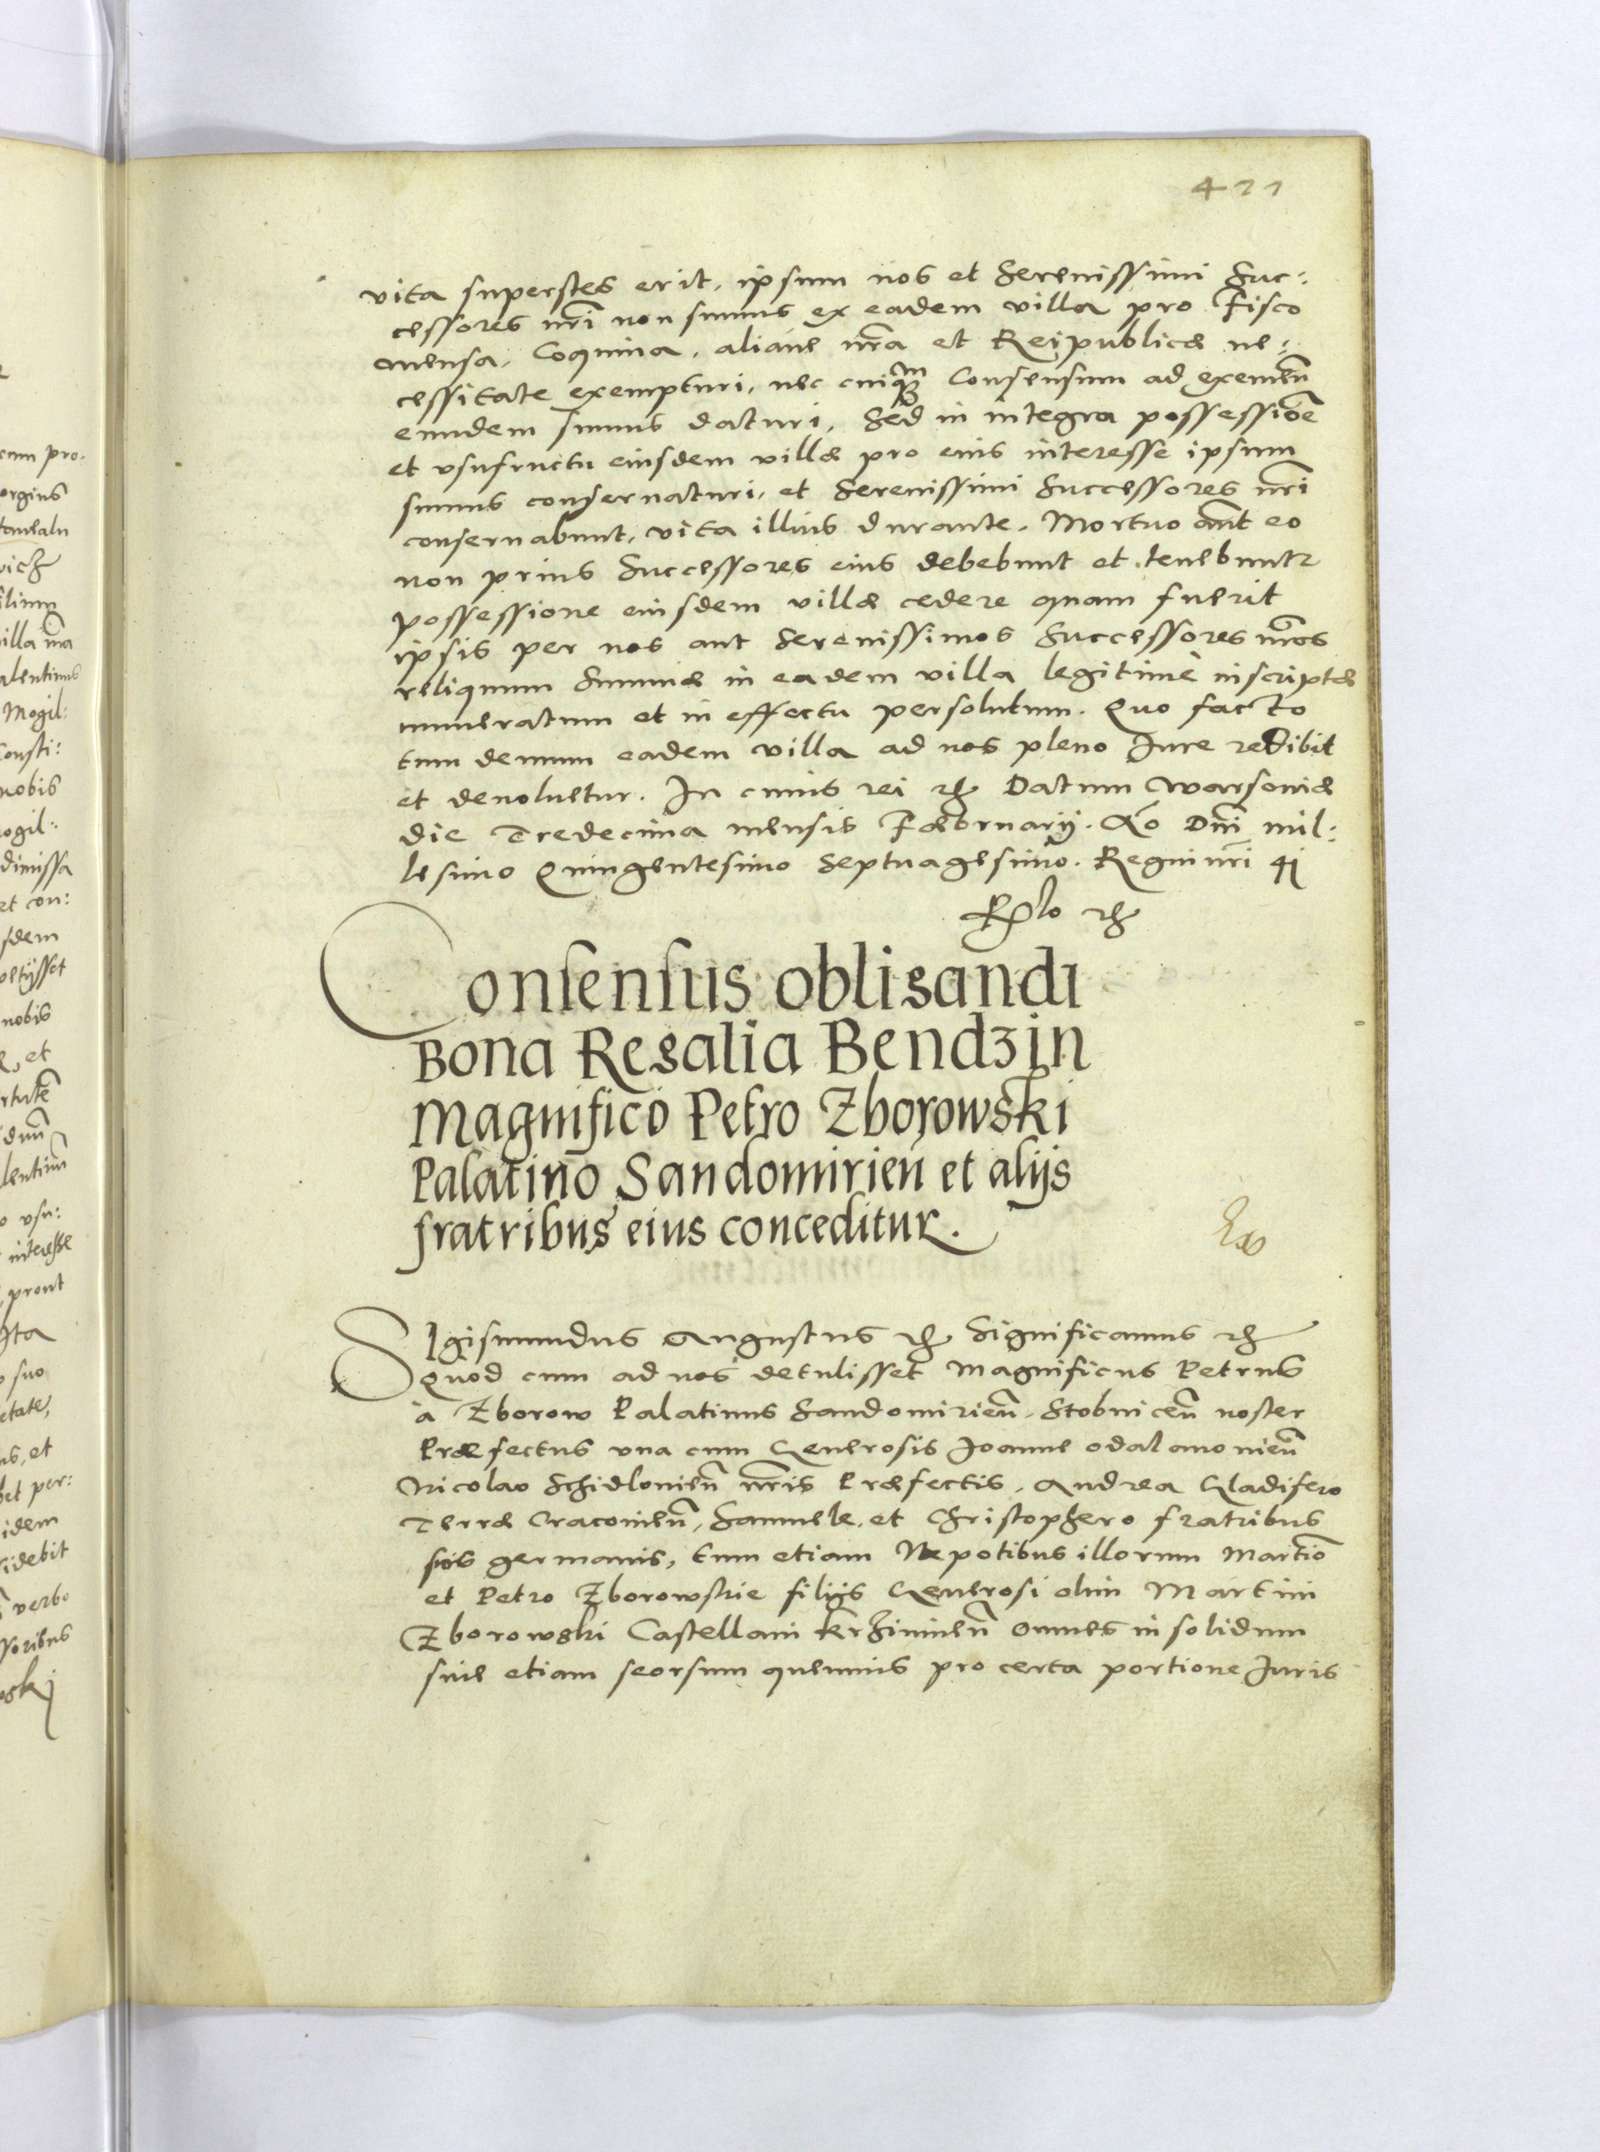 421
vita superstes erit, ipsum nos et Serenissimi Suc:
cessores nr̃i non sumus ex eadem villa pro Fisco
mensa, Coquina, aliave nr̃a et Reipublicæ ne:
cessitate exempturi, nec cuiqȝm Consensum ad exemeñ
eundem sumus daturi, Sed in integra possessioe
et vsufructu eiusdem villæ pro eius interesse ipsum
sumus conseruaturi, et Serenissimi Successores nr̃i
conseruabunt, vita illius durante. Mortuo aũt eo
non prius Successores eius debebunt et tenebuntr
possessione eiusdem villæ cedere quam fuerit
ipsis per nos aut Serenissimos Successores nr̃os
reliquum Summæ in eadem villa legitimè inscriptæ
numeratum et in effectu persolutum. Quo facto
tum demum eadem villa ad nos pleno Iure redibit
et deuoluetur. In cuius rei ꝛc̃ Datum Warsouiæ
die Tredecima mensis Fæbruarij. Ao Dñi mil:
lesimo Quingentesimo Septuagesimo. Regni nr̃i 41
Rlo ꝛc̃
Consensus obligandi
Bona Regalia Bendzin
Magnifico Petro Zborowski
Palatino Sandomirieñ et alijs
fratribus eius conceditur.
Sigismundus Augustus ꝛc̃ Significamus ꝛc̃
Quod cum ad nos detulisset Magnificus Petrus
à Zborow Palatinus Sandomirieñ. Stobniceñ noster
Præfectus vna cum Generosis Joanne odalanouieñ
Nicolao Schidlouieñ nr̃is Præfectis, Andrea Gladifero
Terræ Cracouieñ, Samuele, et Christophero fratribus
suis germanis, tum etiam Nepotibus illorum Martio
et Petro Zborowskie filijs Generosi olim Martini
Zborowski Castellani Krziuineñ omnes in solidum
siue etiam seorsum quemuis pro certa portione Iuris